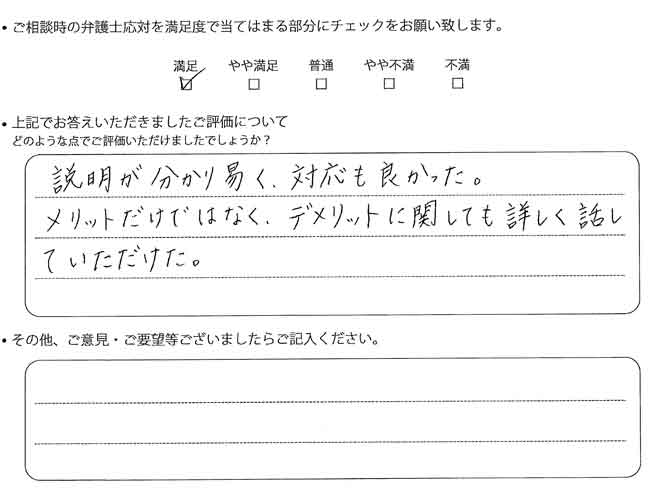 ・ご相談時の弁護士応対を満足度で当てはまる部分にチェックをお願い致します。
満足 やや満足 普通 やや不満 不満
・上記でお答えいただきましたご評価について
どのような点でご評価いただけましたでしょうか？
説明が分かり易く、対応も良かった。
メリットだけではなく、デメリットに関しても詳しく話し
ていただけた。
・その他、ご意見・ご要望等ございましたらご記入ください。